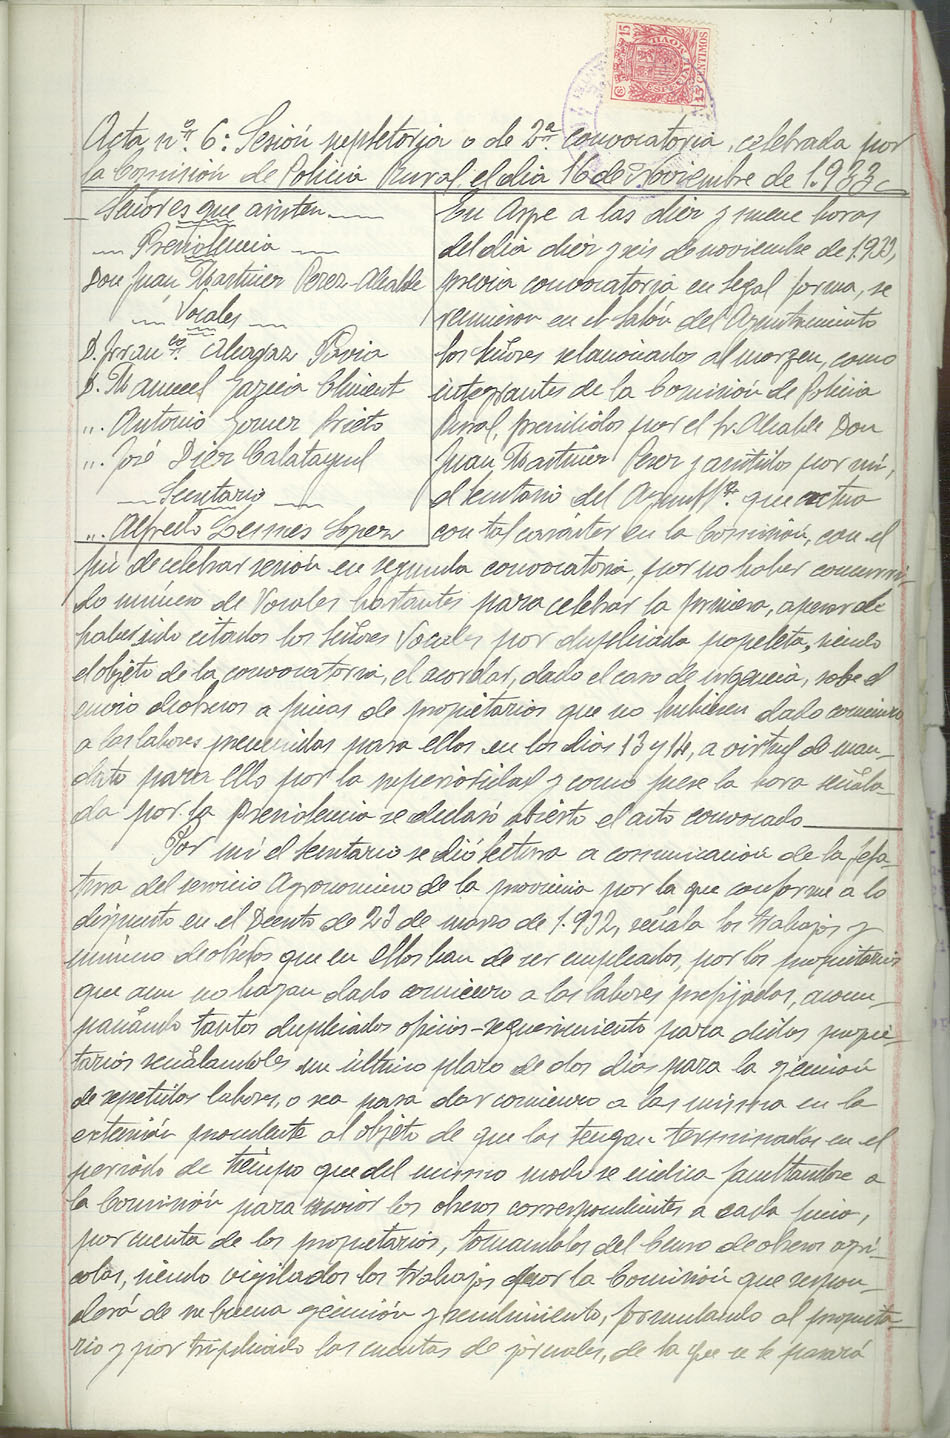 Acta nº 6: Sesión supletoria o de 2ª convocatoria, celebrada por
la Comisión de Policia Rural el dia 16 de Noviembre de 1.933
Señores que asisten
Presidencia
Don Juan Martinez Perez-Alcalde
Vocales
D. Franco Alcaraz Pavia
D. Manuel Garcia Climent
" Antonio Gomez Prieto
" José Diez Calatayud
Secretario
" Alfredo Lopez
En Aspe a las diez y nueve horas
del dia diez y seis de noviembre de 1.933,
previa convocatoria en legal forma, se
reunieron en el Salón del Ayuntamiento
los Señores relacionados al margen, como
integrantes de la Comisión de Policia
Rural, presididos por el Sr. Alcalde Don
Juan Martinez Perez y asistidos por mi,
el secretario del que actua
con tal caracter en la Comisión, con el
fin de celebrar sesión en segunda convocatoria, por no haber concurri-
do número de Vocales bastantes para celebrar la primera, apesar de
haber sido citados los Señores Vocales por duplicada papeleta, siendo
el objeto de la convocatoria, el acordar, dado el caso de urgencia, sobre el
envio de obreros a fincas de propietarios que no hubiesen dado comienzo
a las labores prevenidas para ellos en los dias 13 y 14, a virtud de man-
dato para ello por la superioridad y como fuese la hora señala-
da por la Presidencia se declaró abierto el acto convocado
Por mi el secretario se dió lectura a comunicacion de la Jefa-
tura del servicio Agronomico de la provincia por la que conforme a lo
dispuesto en el Decreto de 23 de marzo de 1.932, señala los trabajos y
número de obreros que en ellos han de ser empleados, por los propietarios
que aun no hayan dado comienzo a las labores prefijadas, acom-
pañando tantos duplicados oficios-requerimiento para dichos propie-
tarios señalandoles un último plazo de dos dias para la ejecución
de repetidas labores, o sea para dar comienzo a las misma en la
extensión procedente al objeto de que las tengan terminadas en el
periodo de tiempo que del mismo modo se indica facultandose a
la Comisión para enviar los obreros correspondientes a cada finca,
por cuenta de los propietarios, tomandolos del Censo de obreros agri-
colas, siendo vigilados los trabajos por la Comisión que respon-
derá de su buena ejecución y rendimiento, formulando al propieta-
rio y por triplicado las cuentas de jornales, de la que se le pasará